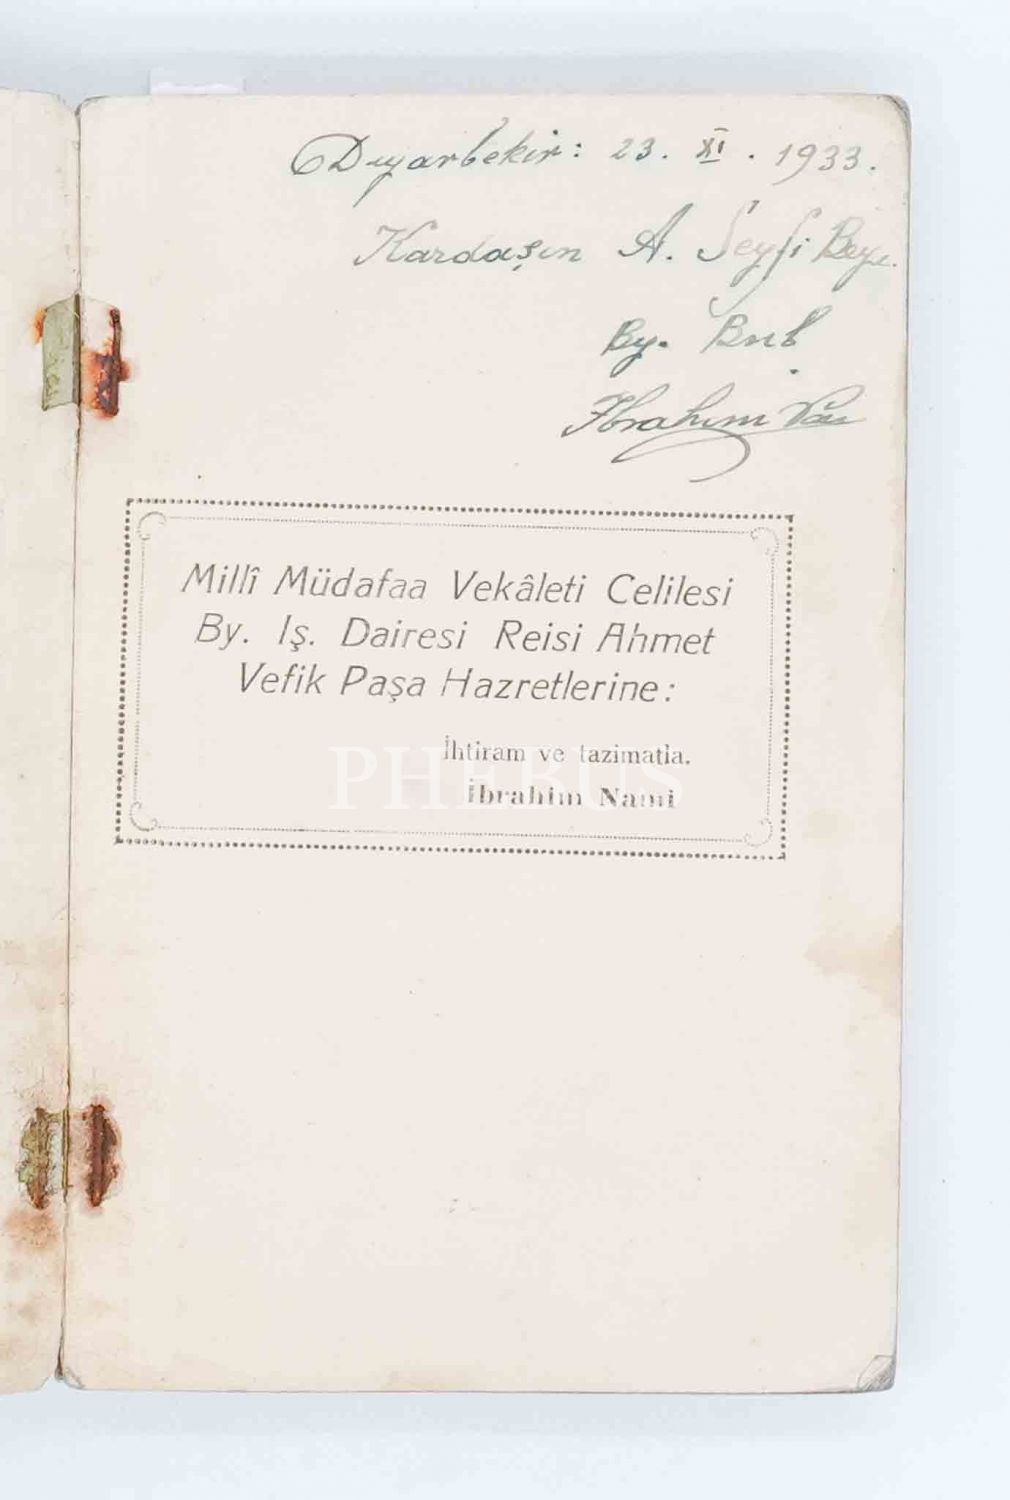 Diyarbekir: 23. XI. 1933.
Kardaşın A. Seyfi Beye.
By. Bnb.
Ibrahim
Millî Müdafaa Vekâleti Celilesi
By. Iş. Dairesi Reisi Ahmet
Vefik Paşa Hazretlerine:
İhtiram ve tazimatla.
İbrahim Nami
PHEBUS